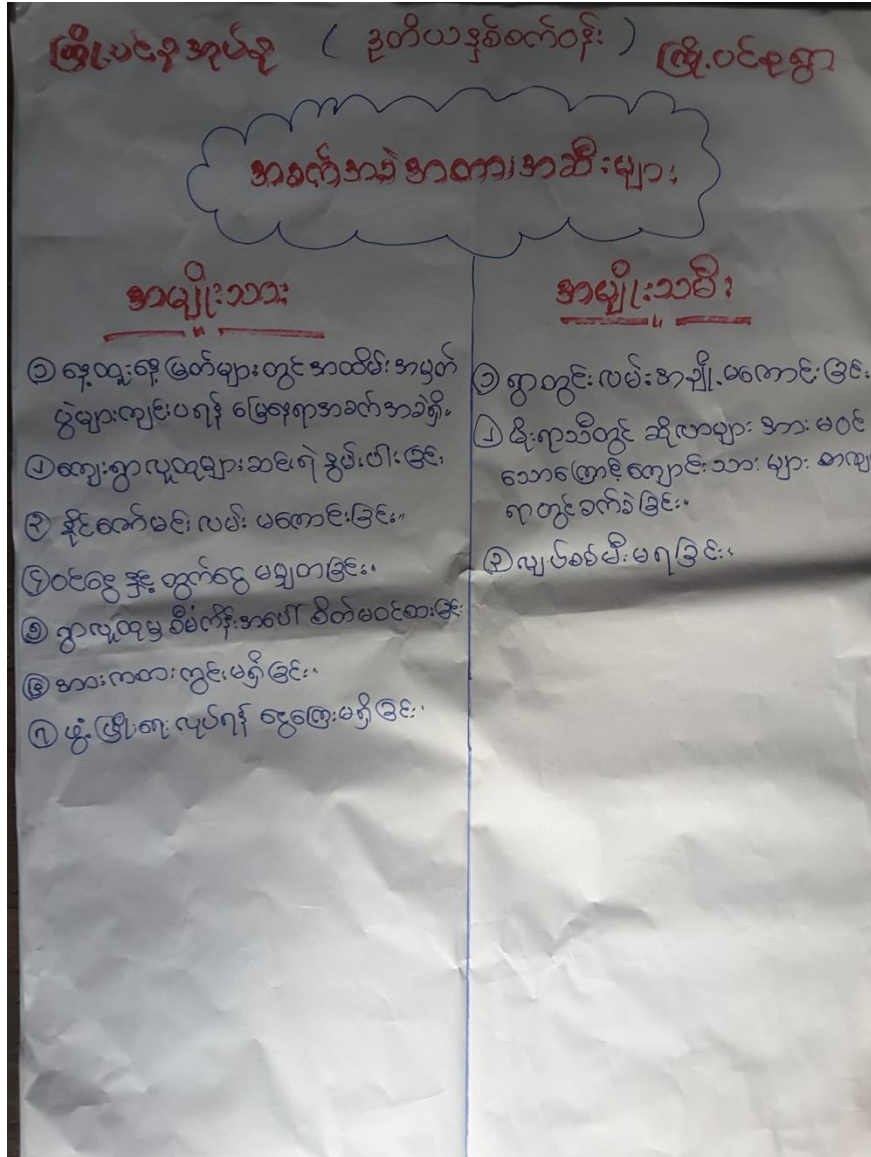 ကြို့ပင်စုအုပ်စု ( ဒုတိယနှစ်စက်ဝန်း ) ကြို့ပင်စုရွာ
အခက်အခဲအတားအဆီးများ
အမျိုးသား
၁ နေ့ထူးနေ့မြတ်များတွင် အထိမ်းအမှတ်
ပွဲများကျင်းပရန် မြေနေရာအခက်အခဲရှိ။
၂ ကျေးရွာလူထုများဆင်းရဲ နွမ်းပါးခြင်း
၃ နိုင်ဇော်မင်းလမ်း မကောင်းခြင်း။
၄ ဝင်ငွေ နှင့် ထွက်ငွေ မမျှတခြင်း။
၅ ရွာလူထုမှ စီမံကိန်းအပေါ် စိတ်မဝင်စားခြင်း
၆ အားကစားကွင်းမရှိခြင်း။
၇ ဖွံ့ဖြိုးရေး လုပ်ရန် ငွေကြေးမရှိခြင်း။
အမျိုးသမီး
၁ ရွာတွင်းလမ်းအချို့ မကောင်းခြင်း
၂ မိုးရာသီတွင် ဆိုလာများ အားမဝင်
သောကြောင့် ကျောင်းသားများ စာကျ
ရာတွင်ခက်ခဲခြင်း။
၃ လျှပ်စစ်မီးမရခြင်း။